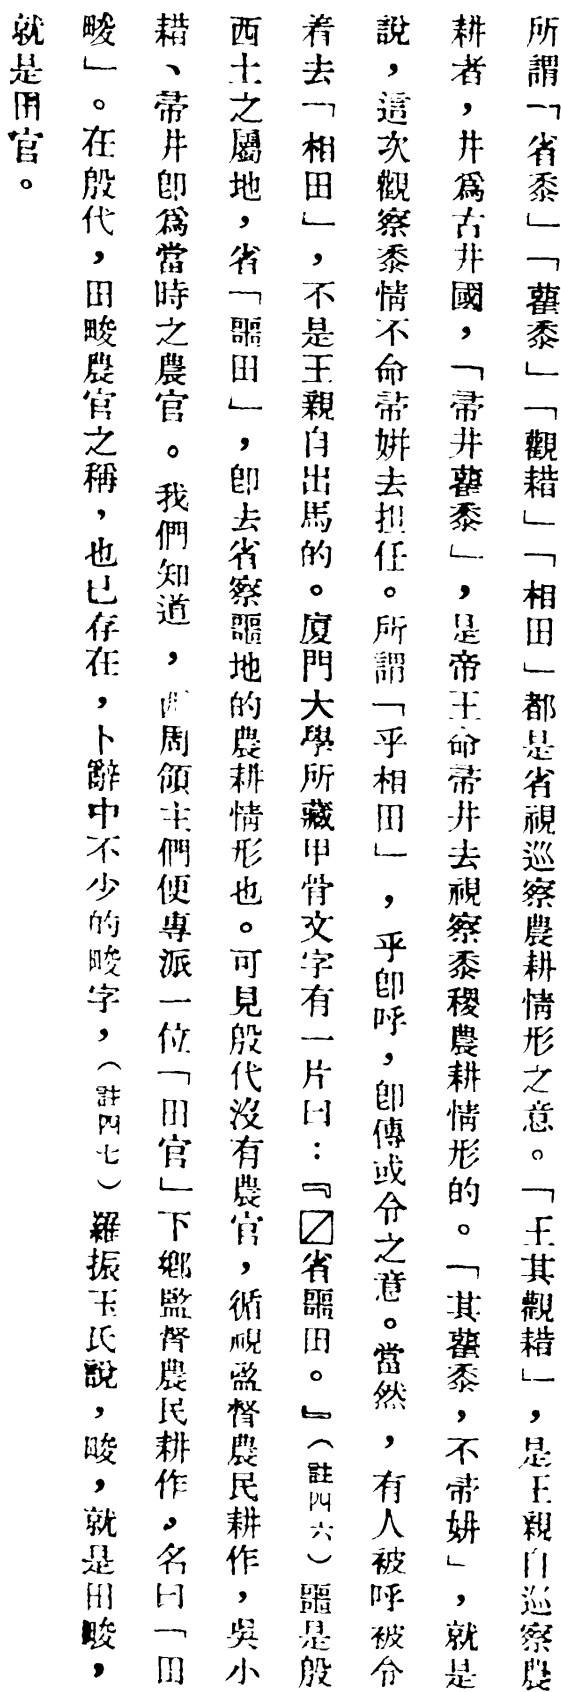 所謂「省黍」「雚黍」「觀耤」「相田」都是省視巡察農耕情形之意。「王其觀耤」，是王親自巡察農
耕者，井爲古井國，「帚井雚黍」，是帝王命帚井去視察黍稷農耕情形的。「其雚黍，不帚妌」，就是
說，這次觀察黍情不命帚妌去担任。所謂「乎相田」，乎卽呼，卽傳或令之意。當然，有人被呼被令
着去「相田」，不是王親自出馬的。廈門大學所藏甲骨文字有一片曰：『〼省噩田。』（註四六）噩是殷
西土之屬地，省「噩田」，卽去省察噩地的農耕情形也。可見殷代沒有農官，循視監督農民耕作，吳小
耤、帚井卽爲當時之農官。我們知道，西周領主們便專派一位「田官」下鄉監督農民耕作，名曰「田
畯」。在殷代，田畯農官之稱，也已存在，卜辭中不少的畯字，（註四七）羅振玉氏說，畯，就是田畯，
就是田官。